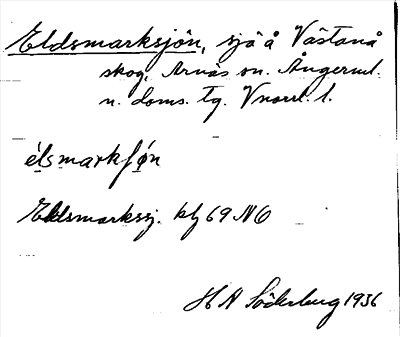 Eldsmarksjön, sjö å Västanå
skog, Arnäs sn. Ångerml.
n. doms. tg. Vnorrl. l.
élsmarkʃǿn
Eldsmarksj. kbl 69 NO
H A Söderberg 1936